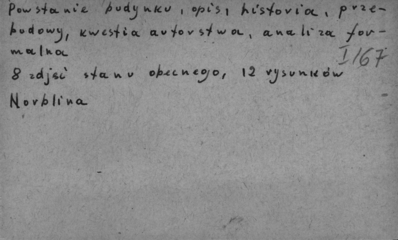 Powstanie budynku, opis, historia, prze-
budowy, kwestia autorstwa, analiza for-
malna
I/67
8 zdjęć stanu obecnego, 12 rysunków
Norblina